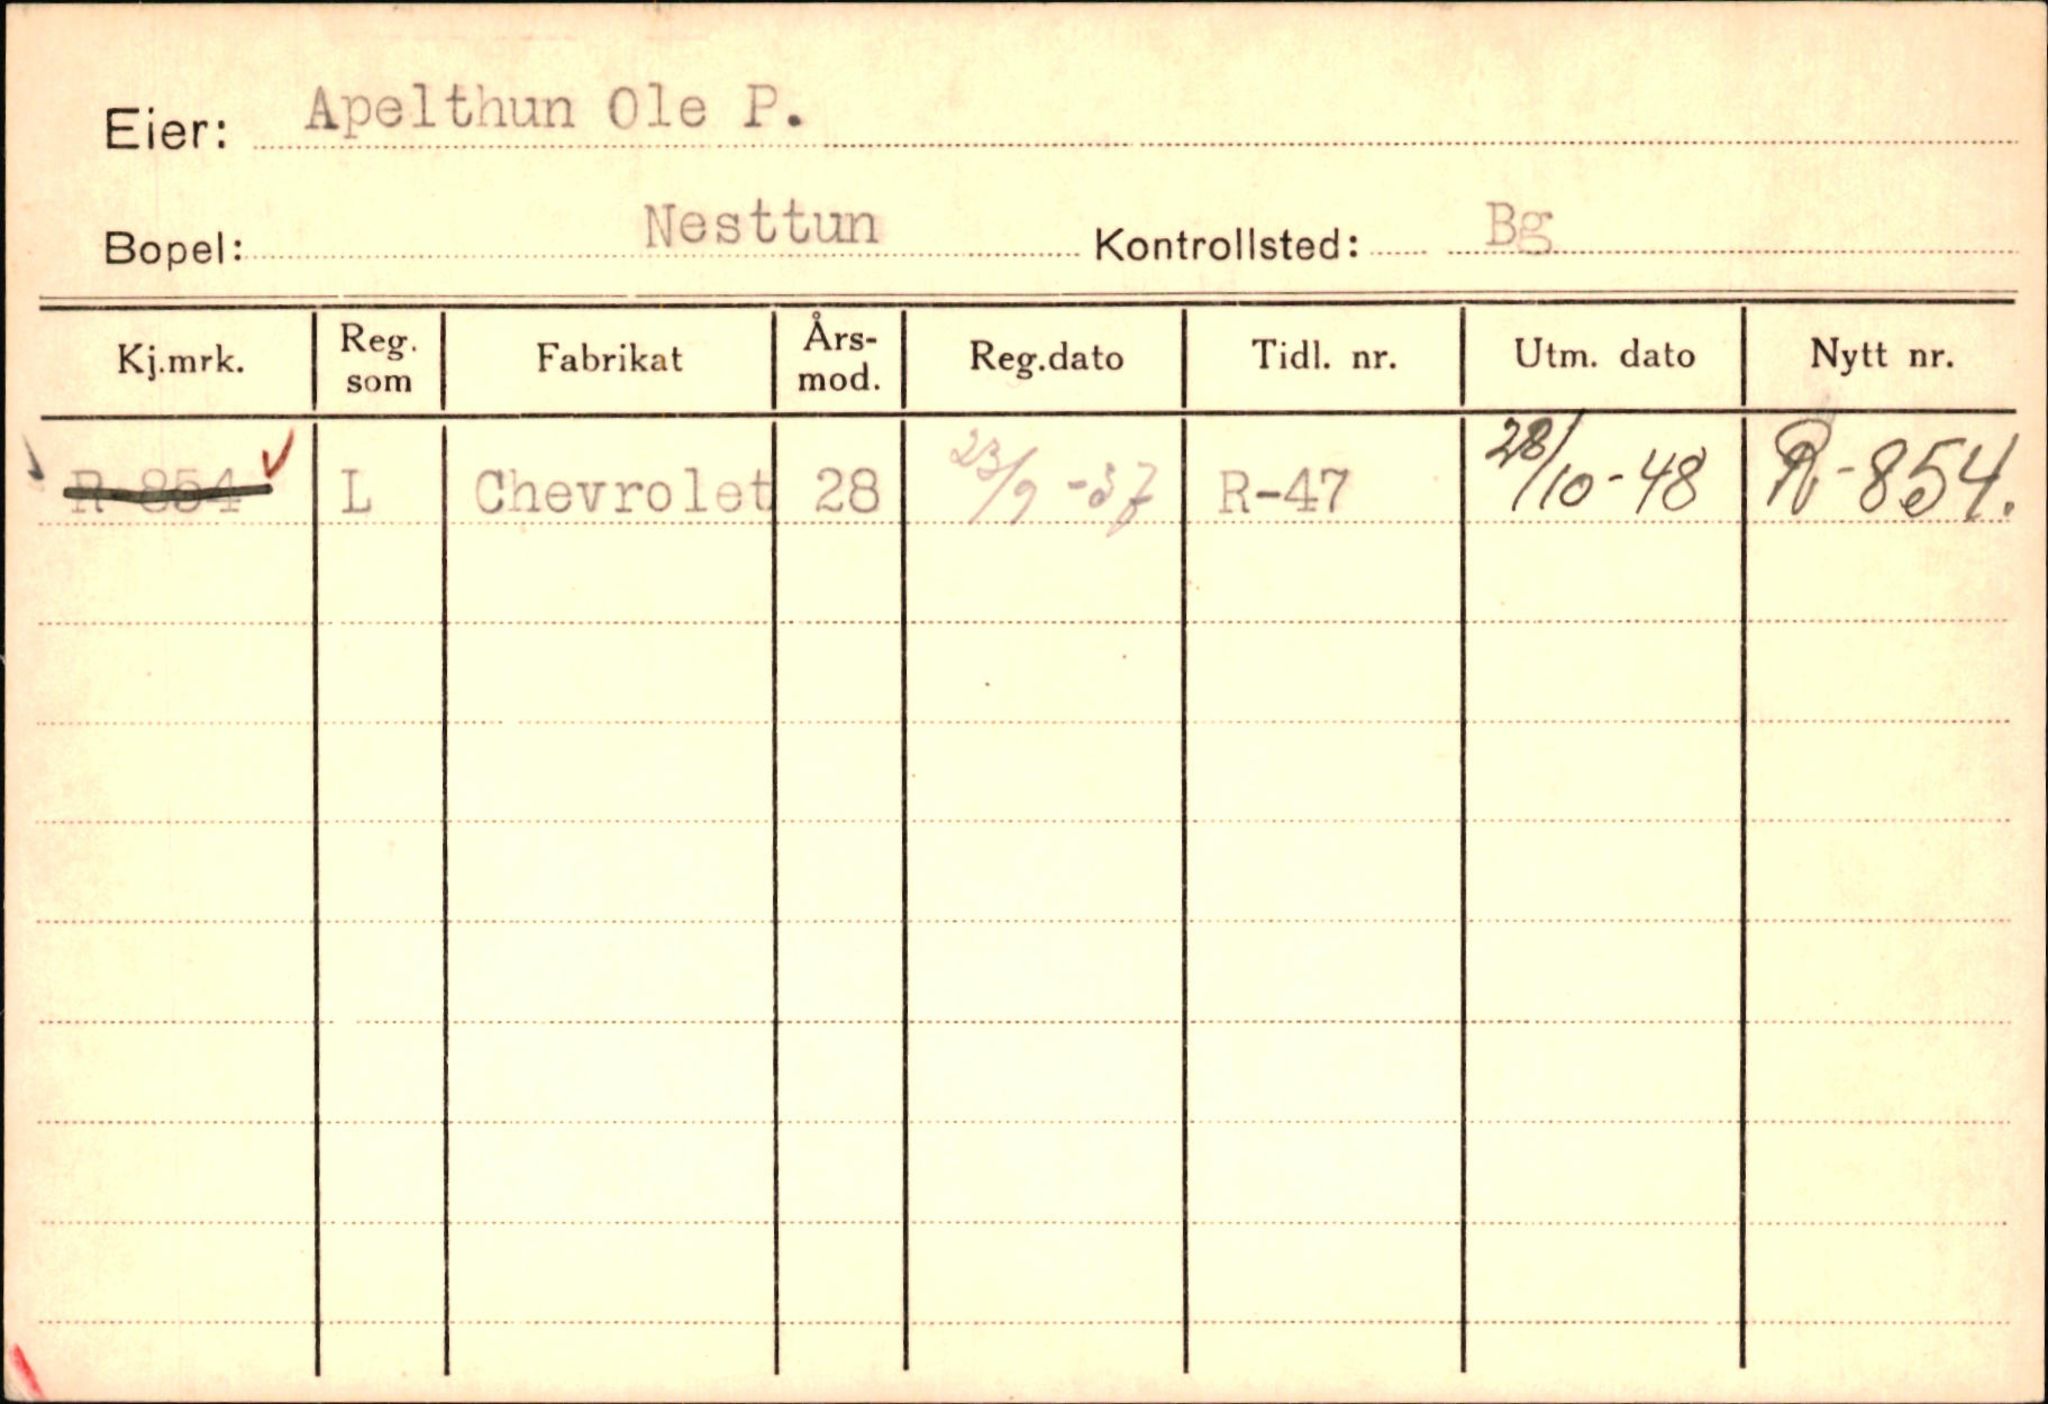 Eier: Apelthun Ole P.
Bopel: Nesttun Kontrollsted: Bg
Kj.mrk. Reg. som Fabrikat Års-mod. Reg.dato Tidl. nr. Utm. dato Nytt nr.
R-854 L Chevrolet 28 23/9-37 R-47 28/10-48 R-854.